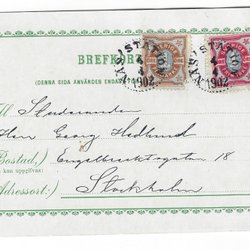 BREFKORT
(DENNA SIDA ANVÄNDES ENDAST
1902
1902
Till Studeranden
Herr Georg Hedlund
(Bostad,) Engelbrektsgatan 18
kan uppgifvas)
(Adressort:) Stockholm